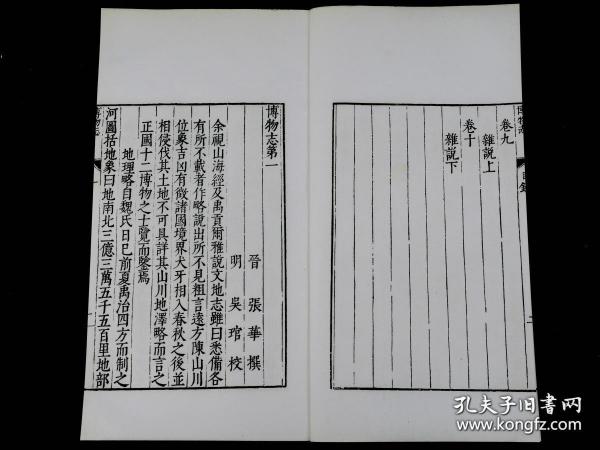 博物志
目錄
卷九
雜說上
卷十
雜說下
二
博物志第一
晉張華撰
明吳琯校
余視山海經及禹貢爾雅說文地志雖曰悉備各
有所不載者作略說出所不見粗言遠方陳山川
位象吉凶有徵諸國境界犬牙相入春秋之後並
相侵伐其土地不可具詳其山川地澤略而言之
正國十二博物之士覽而鑒焉
地理略自魏氏日已前夏禹治四方而制之
河圖括地象曰地南北三億三萬五千五百里地部
博物志
一
孔夫子旧书网
www.kongfz.com